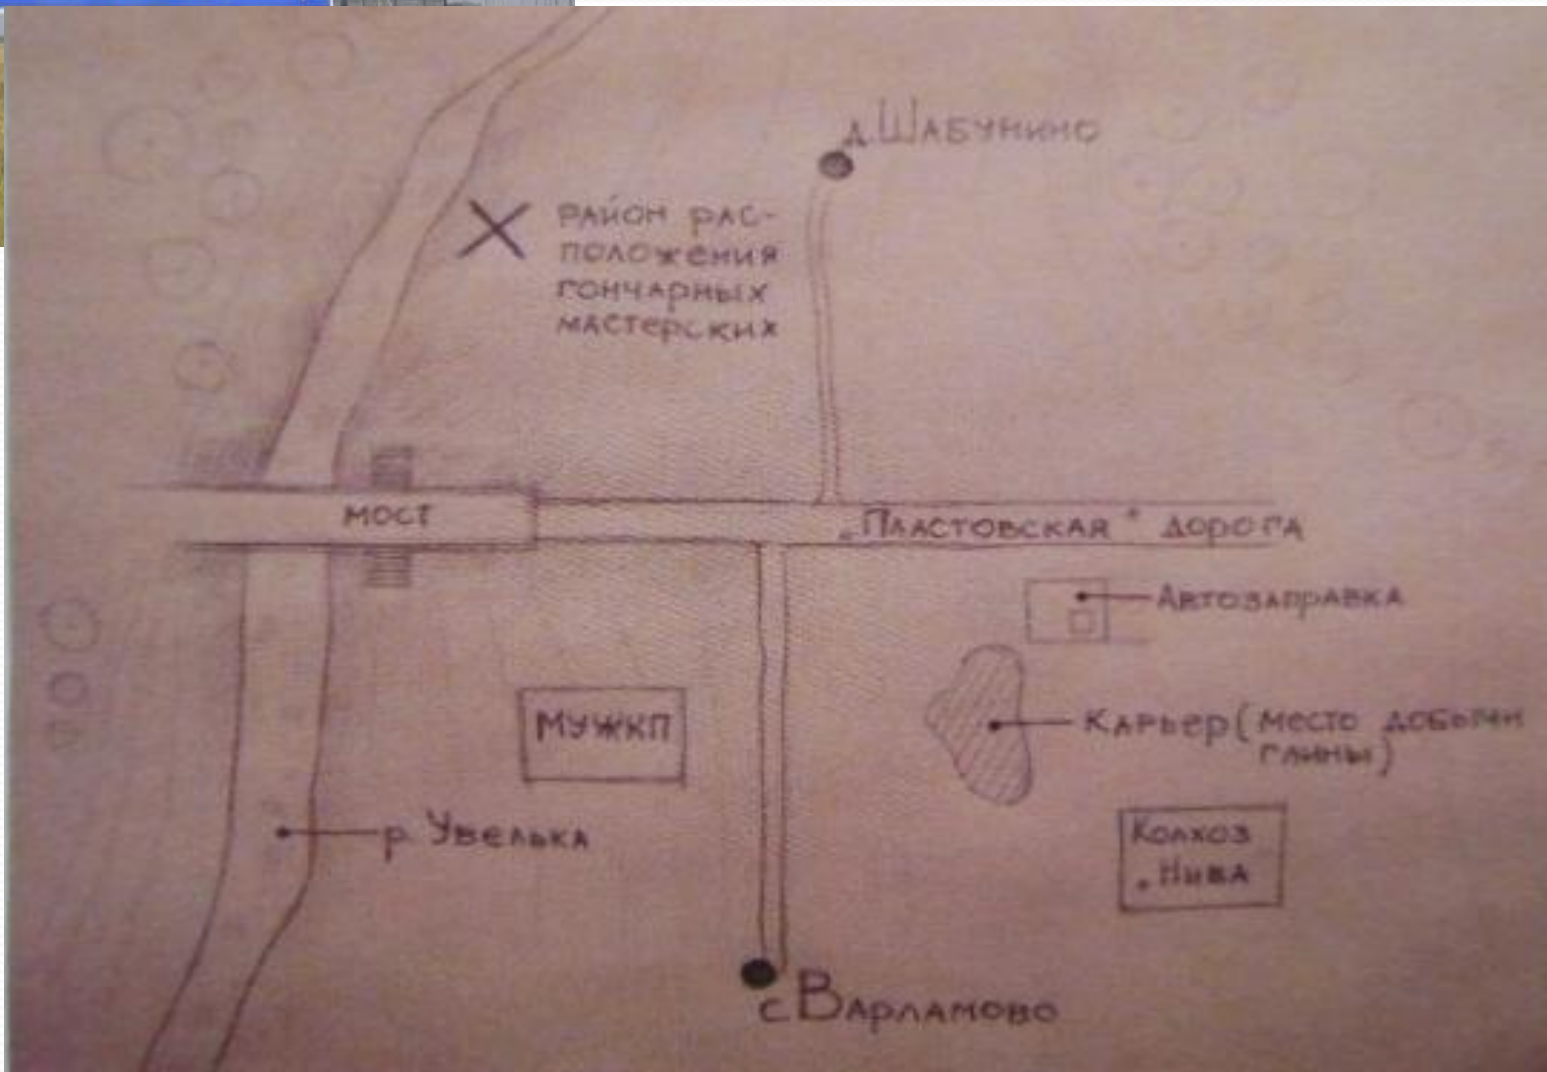 д. Шабунино
район рас-
положения
гончарных
мастерских
мост
„Пластовская" дорога
Автозаправка
МУЖКП
Карьер (место добычи
глины)
р. Увелька
Колхоз
„Нива
с Варламово